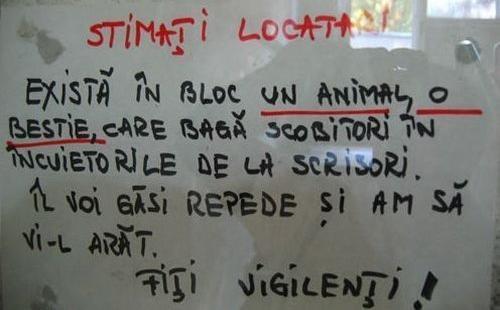 STIMAȚI LOCATARI
EXISTĂ ÎN BLOC UN ANIMAL, O
BESTIE, CARE BAGĂ SCOBITORI ÎN
ÎNCUIETORILE DE LA SCRISORI.
ÎL VOI GĂSI REPEDE ȘI AM SĂ
VI-L ARĂT.
FIȚI VIGILENȚI!